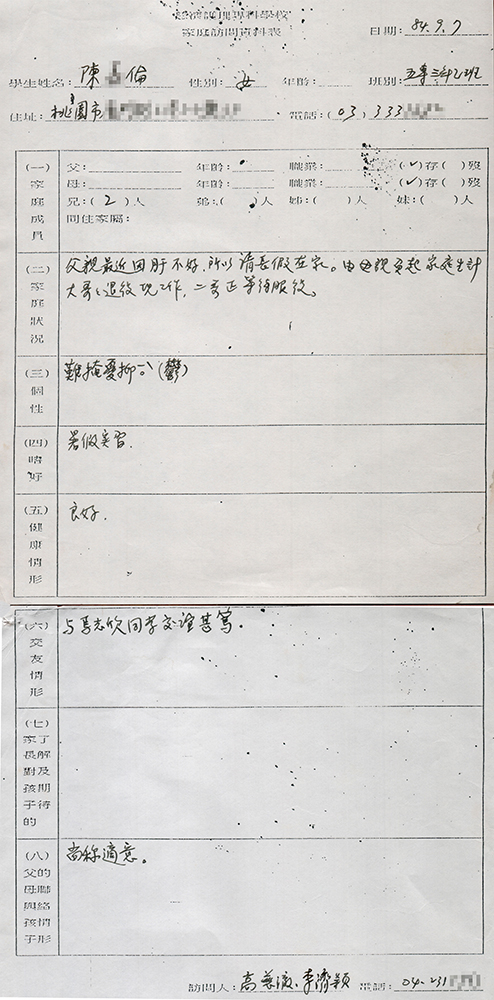 家庭訪問資料表
日期：84.9.7
學生姓名：陳 倫 性別：女 年齡： 班別：五專三年乙班
住址：桃園市 電話：(03)333
(一)家庭成員
父： 年齡： 職業： (✓)存( )歿
母： 年齡： 職業： (✓)存( )歿
兄：(2)人 弟：( )人 姊：( )人 妹：( )人
同住家屬：
(二)家庭狀況
父親最近因肝不好，所以請長假在家。由母親負起家庭生計
大哥已退役現工作，二哥正等待服役。
(三)個性
難掩憂抑(鬱)
(四)嗜好
暑假實習.
(五)健康情形
良好.
(六)交友情形
与馬志欣同學交誼甚篤.
(七)家長對孩子的了解及期待
(八)父母與孩子的聯絡情形
尚称適意。
訪問人： 電話：04-231